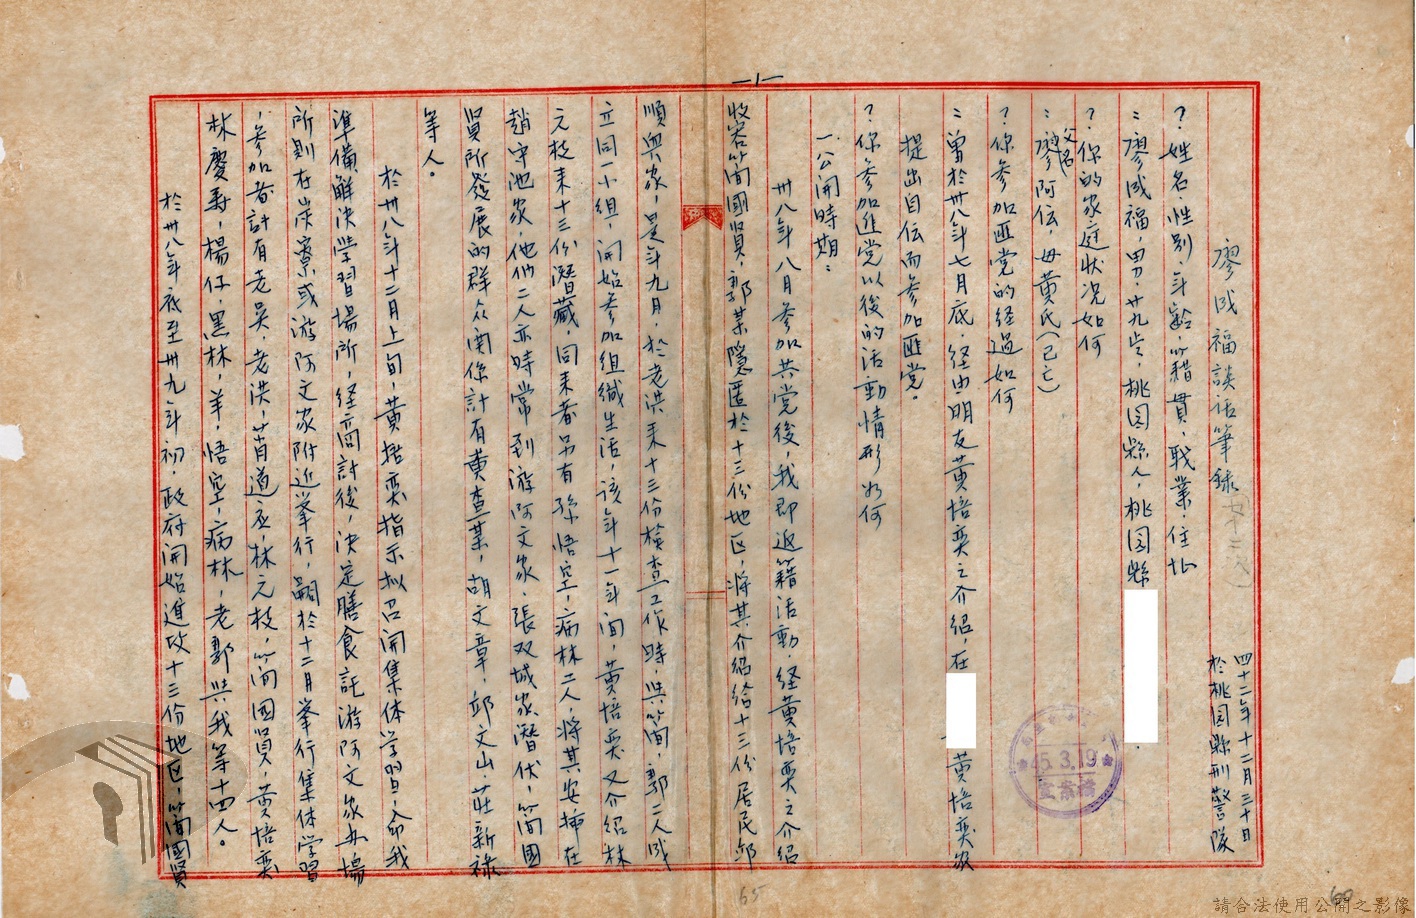 廖成福談話筆錄
四十二年十二月三十日
於桃园縣刑警隊
?姓名.性別.年齡.籍貫.職業.住址
:廖成福,男,廿九岁,桃园縣人,桃园縣
?你的家庭状况如何
:父名廖阿伝,母黄氏(已亡)
?你参加匪党的経過如何
:曾於卅八年七月底.経由朋友黄培奕之介绍,在 黄培奕家
提出自伝而参加匪党.
?你参加進党以後的活動情形如何
一公開時期:
卅八年八月参加共党後,我即返籍活動.経黄培奕之介绍
收容簡國貝,郭某隱匿於十三份地区,将其介绍给十三份居民邱
順興家,是年九月,於老洪来十三份檢查工作時,與簡,郭二人成
立同一小組,開始参加組織生活,該年十一年间,黄培奕又介绍林
元枝来十三份潛藏,同来者另有孫悟空,病林二人,将其安挿在
趙守池家,他们二人亦時常到游阿文家,張双城家潛伏,簡國
贤所發展的群众関係計有黄查某,胡文章,邱文山,莊新祿
等人.
於卅八年十二月上旬,黄培奕指示拟召開集体学習,命我
準備解决学習場所,経商討後,决定膳食託游阿文家办場
所則在炭寮或游阿文家附近举行,嗣於十二月举行集体学習
,参加者計有老吴,老洪,首道五,林元枝,简国貝,黄培奕
林慶寿,楊仔,黑林,羊,悟空,病林,老郭與我等十四人.
於卅八年底至卅九年初,政府開始進攻十三份地区,簡國賢
65
60
請合法使用公開之影像